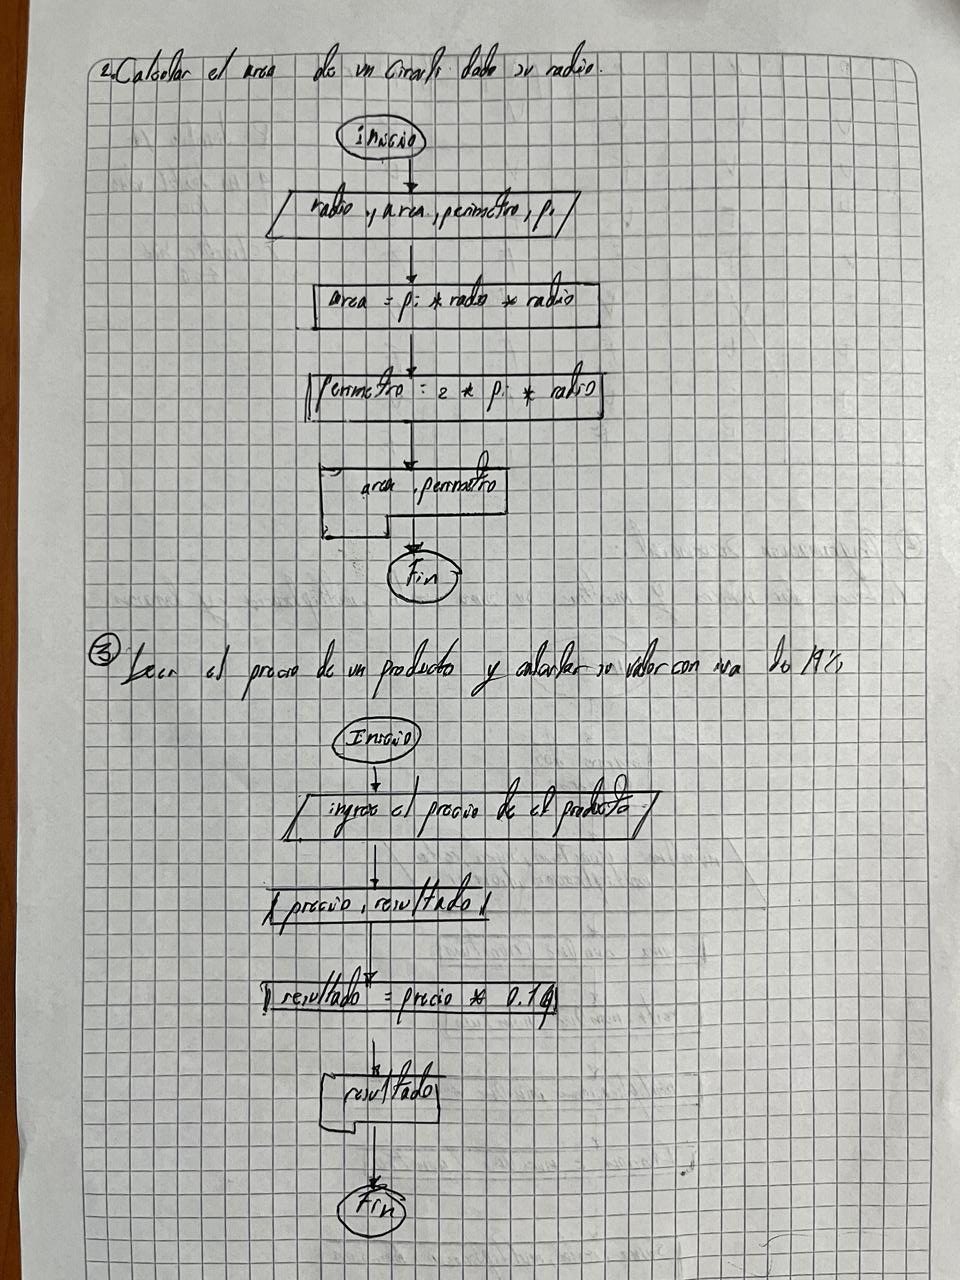 2. Calcular el area de un Circulo dado su radio.
Inicio
radio y area, perimetro, pi
area = pi * radio * radio
Perimetro = 2 * pi * radio
area, perimetro
Fin
③ Leer el precio de un producto y calcular su valor con iva de 19%
Inicio
ingrese el precio de el producto
precio, resultado
resultado = precio * 0.19
resultado
Fin